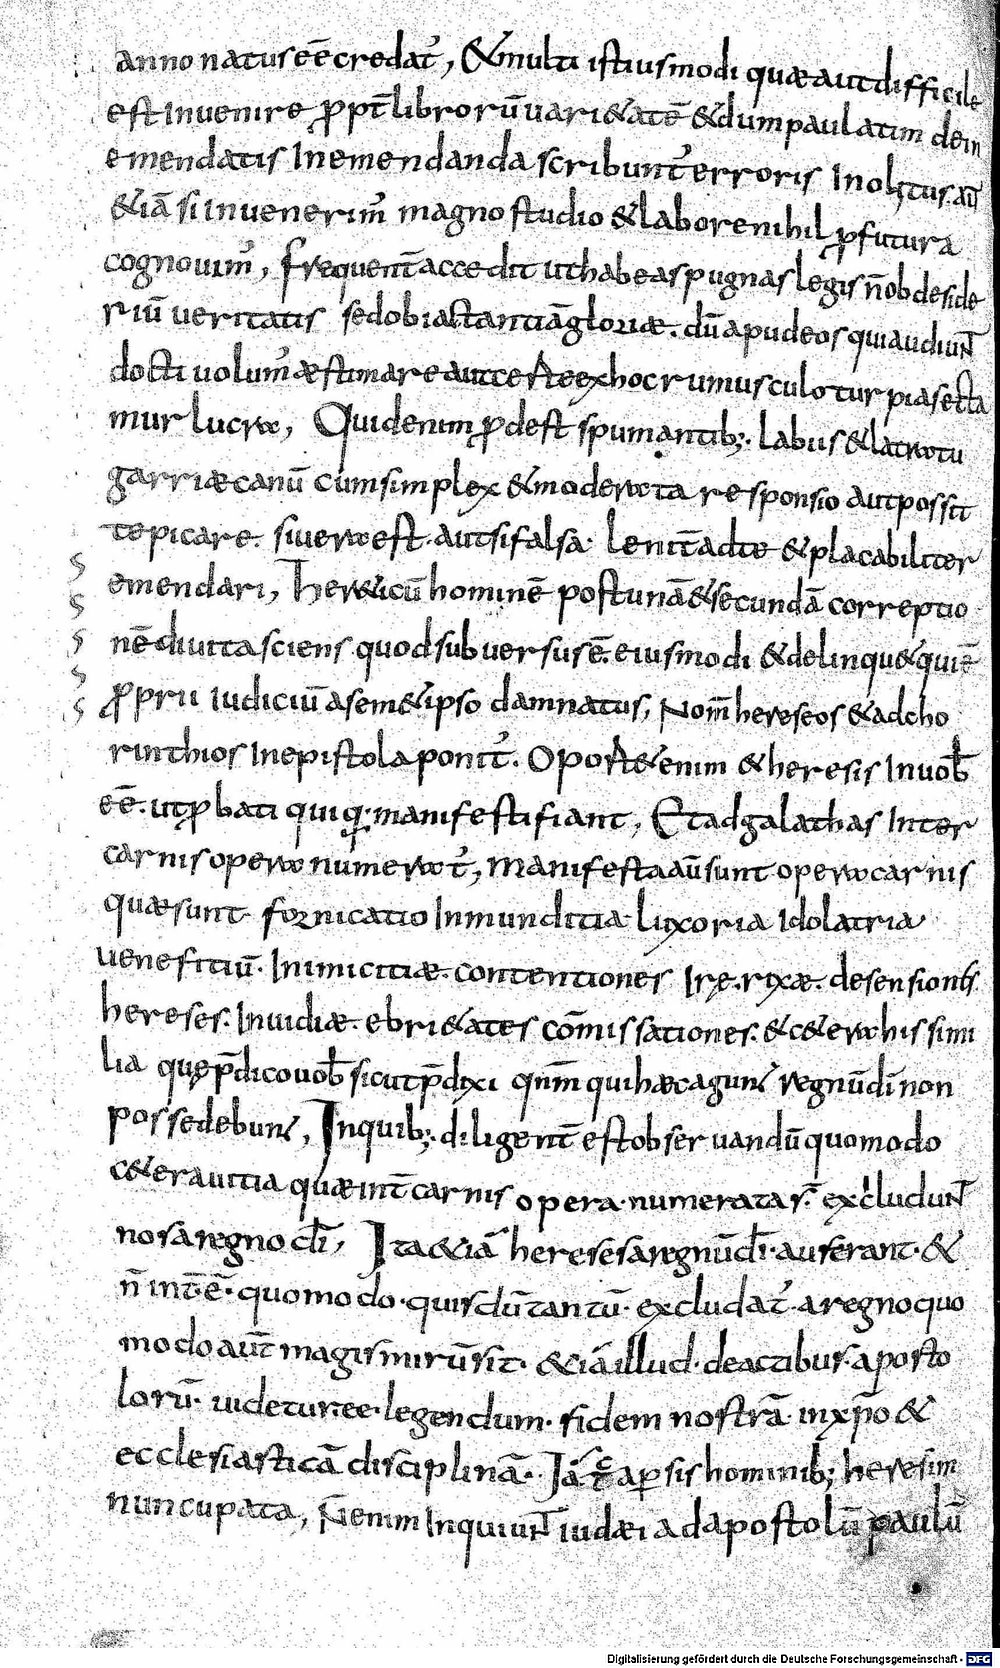 anno natus eē credat᷑, &multi istiusmodi quæ aut difficile
est Inuenire ꝓpt̄ librorū uari&atē &dum paulatim dein
emendatis Inemendanda scribunt᷑ erroris Inolitus. aut̄
&iā si Inuenerim᷑ magno studio &labore nihil ꝓfutura
cognouim᷑, frequent̄ accedit ut habeas pugnas legis n̄ ob deside
riū ueritatis sed ob iactantiā gloriæ. dū apud eos qui audiunt̄
docti uolum᷑ æstimare aut certe ex hoc rumusculo turpia secta
mur lucra, Quid enim ꝓdest spumantib; labiis &latratu
garriæ canū cum simplex &moderata responsio aut possit
te picare. si uera est. aut si falsa. lenit̄ adte &placabiliter
emendari, Her&icū hominē post unā &secundā correptio
nē diuita sciens quod subuersus ē. eiusmodi &delinqu& qui ē
ꝓprii iudiciū a sem&ipso damnatus, Nom̄ hereseos &ad cho
rinthios In epistola ponit᷑. Oport& enim &heresis In uob̄
eē. ut ꝓbati quiq; manifesti fiant, Et ad galathas Inter
carnis opera numerat᷑, Manifesta aū sunt opera carnis
quæ sunt fornicatio Inmunditia luxoria Idolatria
uenefitiū. Inimicitiæ. contentiones Irę. rixæ. desensionis
hereses. Inuidiæ. ebri&ates cōmissationes. &c&era his simi
lia quę p̄dico uob̄ sicut p̄dixi qnm̄ qui hæc agunt regnū dī non
possedebunt, Inquib;. diligent̄ est obseruandū quomodo
c&era uitia quæ int̄ carnis opera. numerata s̄t excludunt̄
nos a regno dī, Ita &iā hereses a regnū dī. auferant. &
n̄ int̄.ē. quomodo. quis dū tantū. excludat᷑. a regno quo
modo aut̄ magis mirū sit. &iā illud. de actibus. aposto
lorū. uidetur. eē. legendum. fidem nostrā in xp̄o &
ecclesiasticā disciplinā. Iā tc̄ a ꝑsis hominib; heresim
nuncupata, N̄ enim Inquiunt̄ iudæi ad apostolū paulū
Digitalisierung gefördert durch die Deutsche Forschungsgemeinschaft - DFG